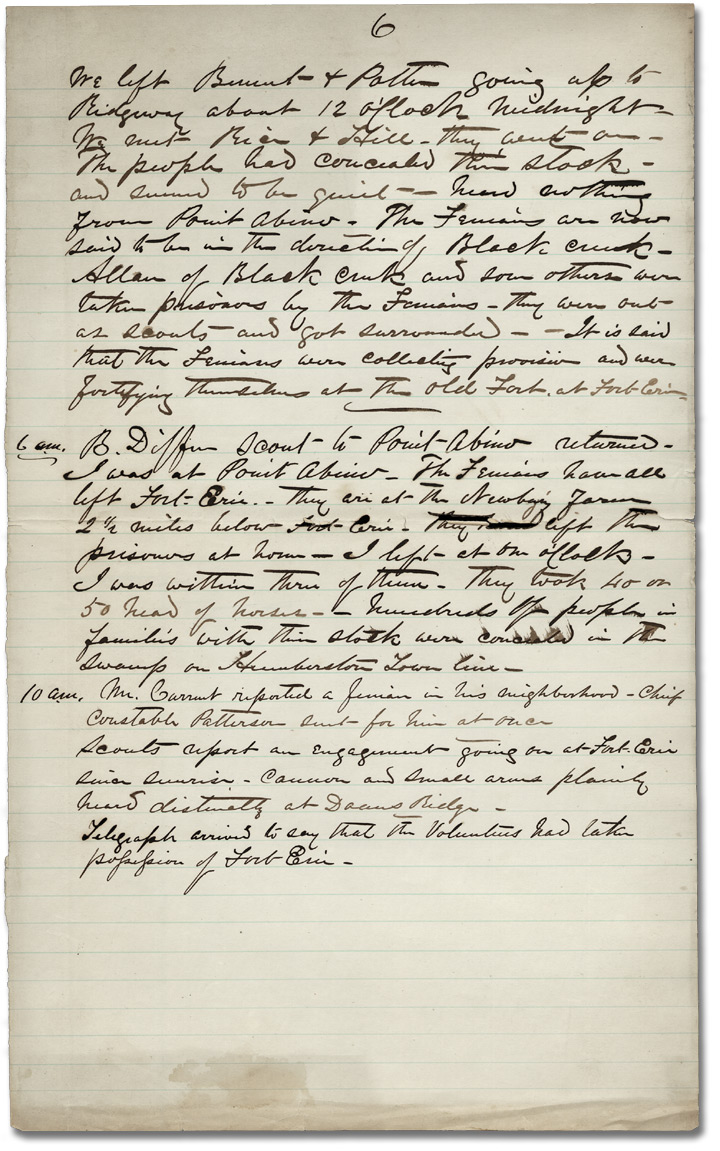 6
We left Bennet & Potter going up to
Ridgeway about 12 o'Clock midnight -
We met Rice & Hill - they went on -
The people had concealed their stock -
and seemed to be quiet - heard nothing
from Point Abino - The Fenians are now
said to be in the direction of Black creek -
Allan of Black Creek and some others were
taken prisoners by the Fenians - they were out
as scouts and got surrounded - - It is said
that the Fenians were collecting provision and were
fortifying themselves at the old Fort. at Fort Erie -
6 a.m. B. Differ scout to Point Abino returned -
I was at Point Abino - The Fenians have all
left Fort Erie. - they are at the Newbigg farm
2 1/2 miles below Fort Erie - left the
prisoners at home - I left at one o'Clock -
I was within three of them - They took 40 or
50 head of horses - - Hundreds of people in
families with their stock were concealed in the
swamp on Humberston Town line -
10 a.m. Mr. Current reported a Fenian in his neighborhood - Chief
Constable Patterson sent for him at once
Scouts report an Engagement going on at Fort Erie
since sunrise - Cannon and small arms plainly
heard distinctly at Doans Ridge -
Telegraph arrived to say that the Volunteers had taken
possession of Fort Erie -